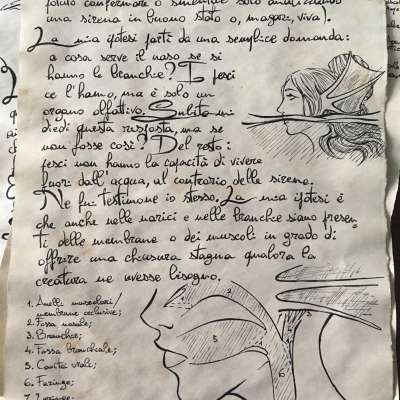 potuto confermare o smentire solo analizzando
una sirena in buono stato o, magari, viva).
La mia ipotesi parte da una semplice domanda:
a cosa serve il naso se si
hanno le branchie? I pesci
ce l'hanno, ma è solo un
organo olfattivo. Subito mi
diedi questa risposta, ma se
non fosse così? Del resto i
pesci non hanno la capacità di vivere
fuori dall'acqua, al contrario delle sirene.
Ne fui testimone io stesso. La mia ipotesi è
che anche nelle narici e nelle branchie siano presen-
ti delle membrane o dei muscoli in grado di
offrire una chiusura stagna qualora la
creatura ne avesse bisogno.
1. Anelli muscolari/
membrane occlusive;
2. Fossa nasale;
3. Branchie;
4. Fossa branchiale;
5. Cavità orale;
6. Faringe;
7. Laringe;